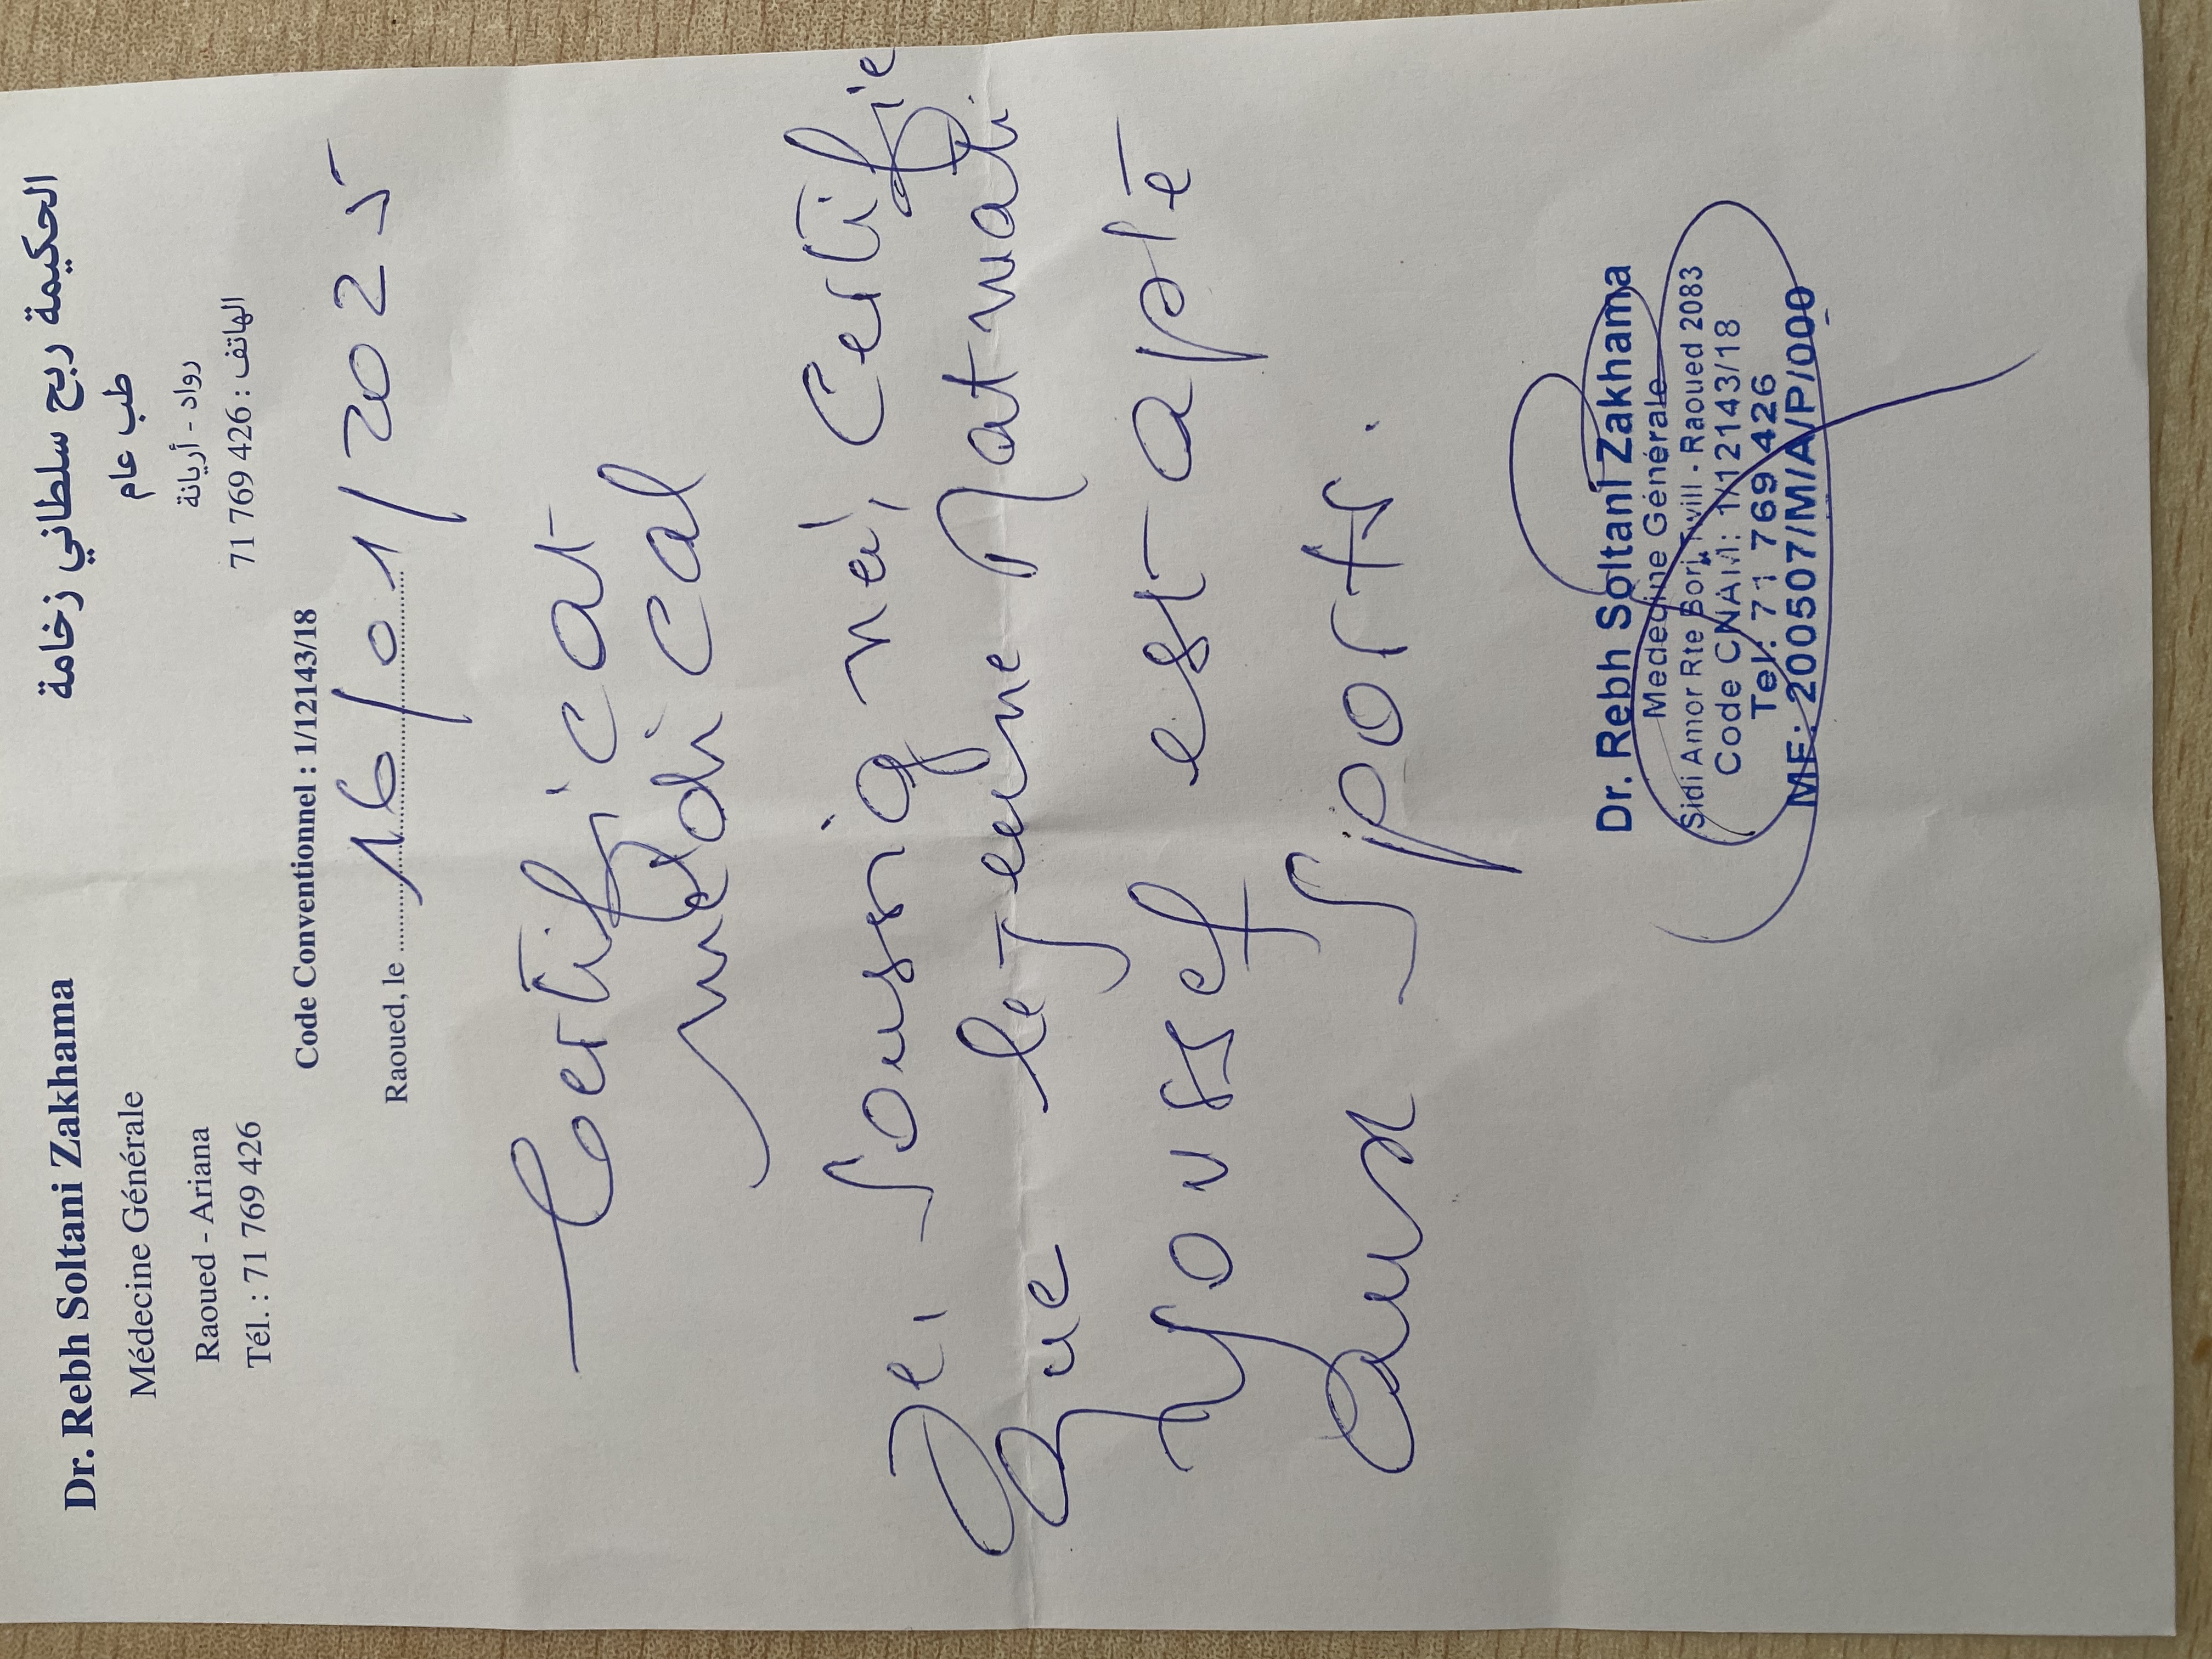 Dr. Rebh Soltani Zakhama
Médecine Générale
Raoued - Ariana
Tél. : 71 769 426
الحكيمة ربح سلطاني زخامة
طب عام
رواد - أريانة
الهاتف : 426 769 71
Code Conventionnel : 1/12143/18
Raoued, le 16/01/2025
Certificat
medical
Je, soussigné, certifie
que le jeune
Youssef est apte
aux sports.
Dr. Rebh Soltani Zakhama
Medecine Générale
Sidi Amor Rte Borj Twill - Raoued 2083
Code CNAM: 1/12143/18
Tel: 71 769 426
MF: 200507/M/A/P/000